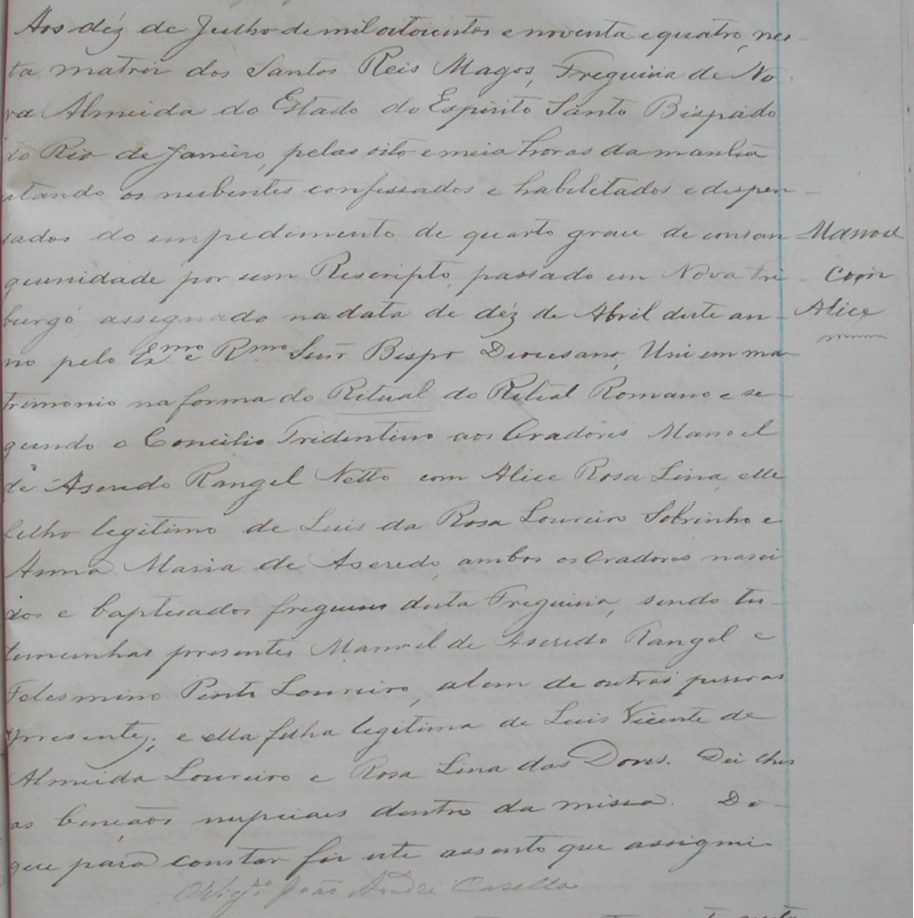 Aos déz de Julho de mil oitocentos e noventa e quatro, nes-
ta matriz dos Santos Reis Magos, Freguisia de No-
va Almeida do Estado do Espirito Santo Bispado
do Rio de Janeiro, pelas oito e meia horas da manhã
estando os nubentes confessados e habelitados e dispen-
sados do empedimento de quarto grau de consan-
Manoel
guinidade por um Rescripto, passado em Nova Fri-
com
burgo assignado na data de déz de Abril deste an-
Alice
no pelo Exmo e Rmo Senr Bispo Diocesano, Uni em ma-
trimonio na forma do Ritual do Ritual Romano e se-
gundo o Concilio Tridentino aos Oradores Manoel
de Aseredo Rangel Netto com Alice Rosa Lina, elle
filho legitimo de Luis da Rosa Loureiro Sobrinho e
Anna Maria de Aseredo, ambos os Oradores nasci
dos e baptisados freguises desta Freguisia, sendo tes-
temunhas presentes Manoel de Aseredo Rangel e
Pinto Loureiro, alem de outras pessoas
presentes; e ella filha legitima de Luis Vicente de
Almeida Loureiro e Rosa Lina das Dores. Dei lhes
as bençãos nupciais dentro da missa. Do
que para constar fiz este assento que assignei
João André Casella